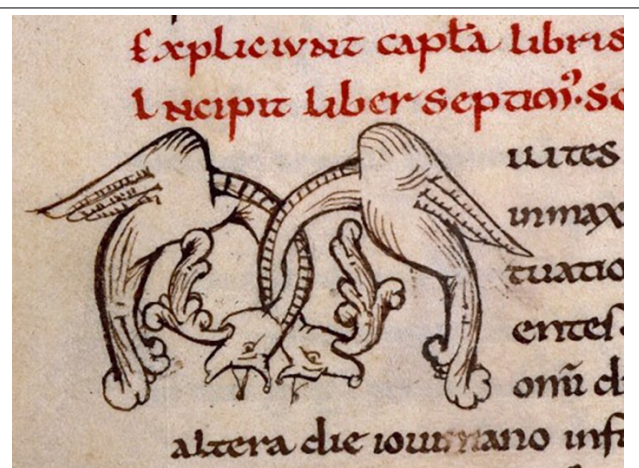 Expliciunt capl̃a libri s
Incipit liber septim᾿. Sc
ilites
inmax
tuatio
entes.
omū
altera die iouiniano inf